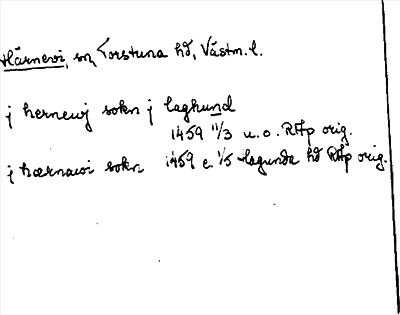 Härnevi, sn, Torstuna hd, Västm. l.
j hernewj sokn j laghund
1459 11/3 u. o. RAp orig.
j hærnawi sokn 1459 e. 1/5 lagunda hd RAp orig.